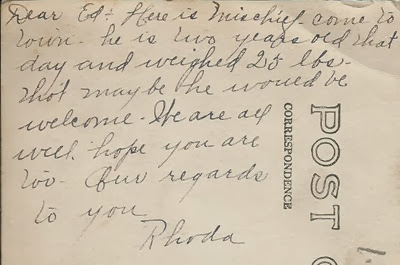 Dear Ed:- Here is Mischief come to
town - he is two years old that
day and weighed 25 lbs-
thot may be he would be
welcome - We are all
well. hope you are
too - Our regards
to you
Rhoda
CORRESPONDENCE
POST